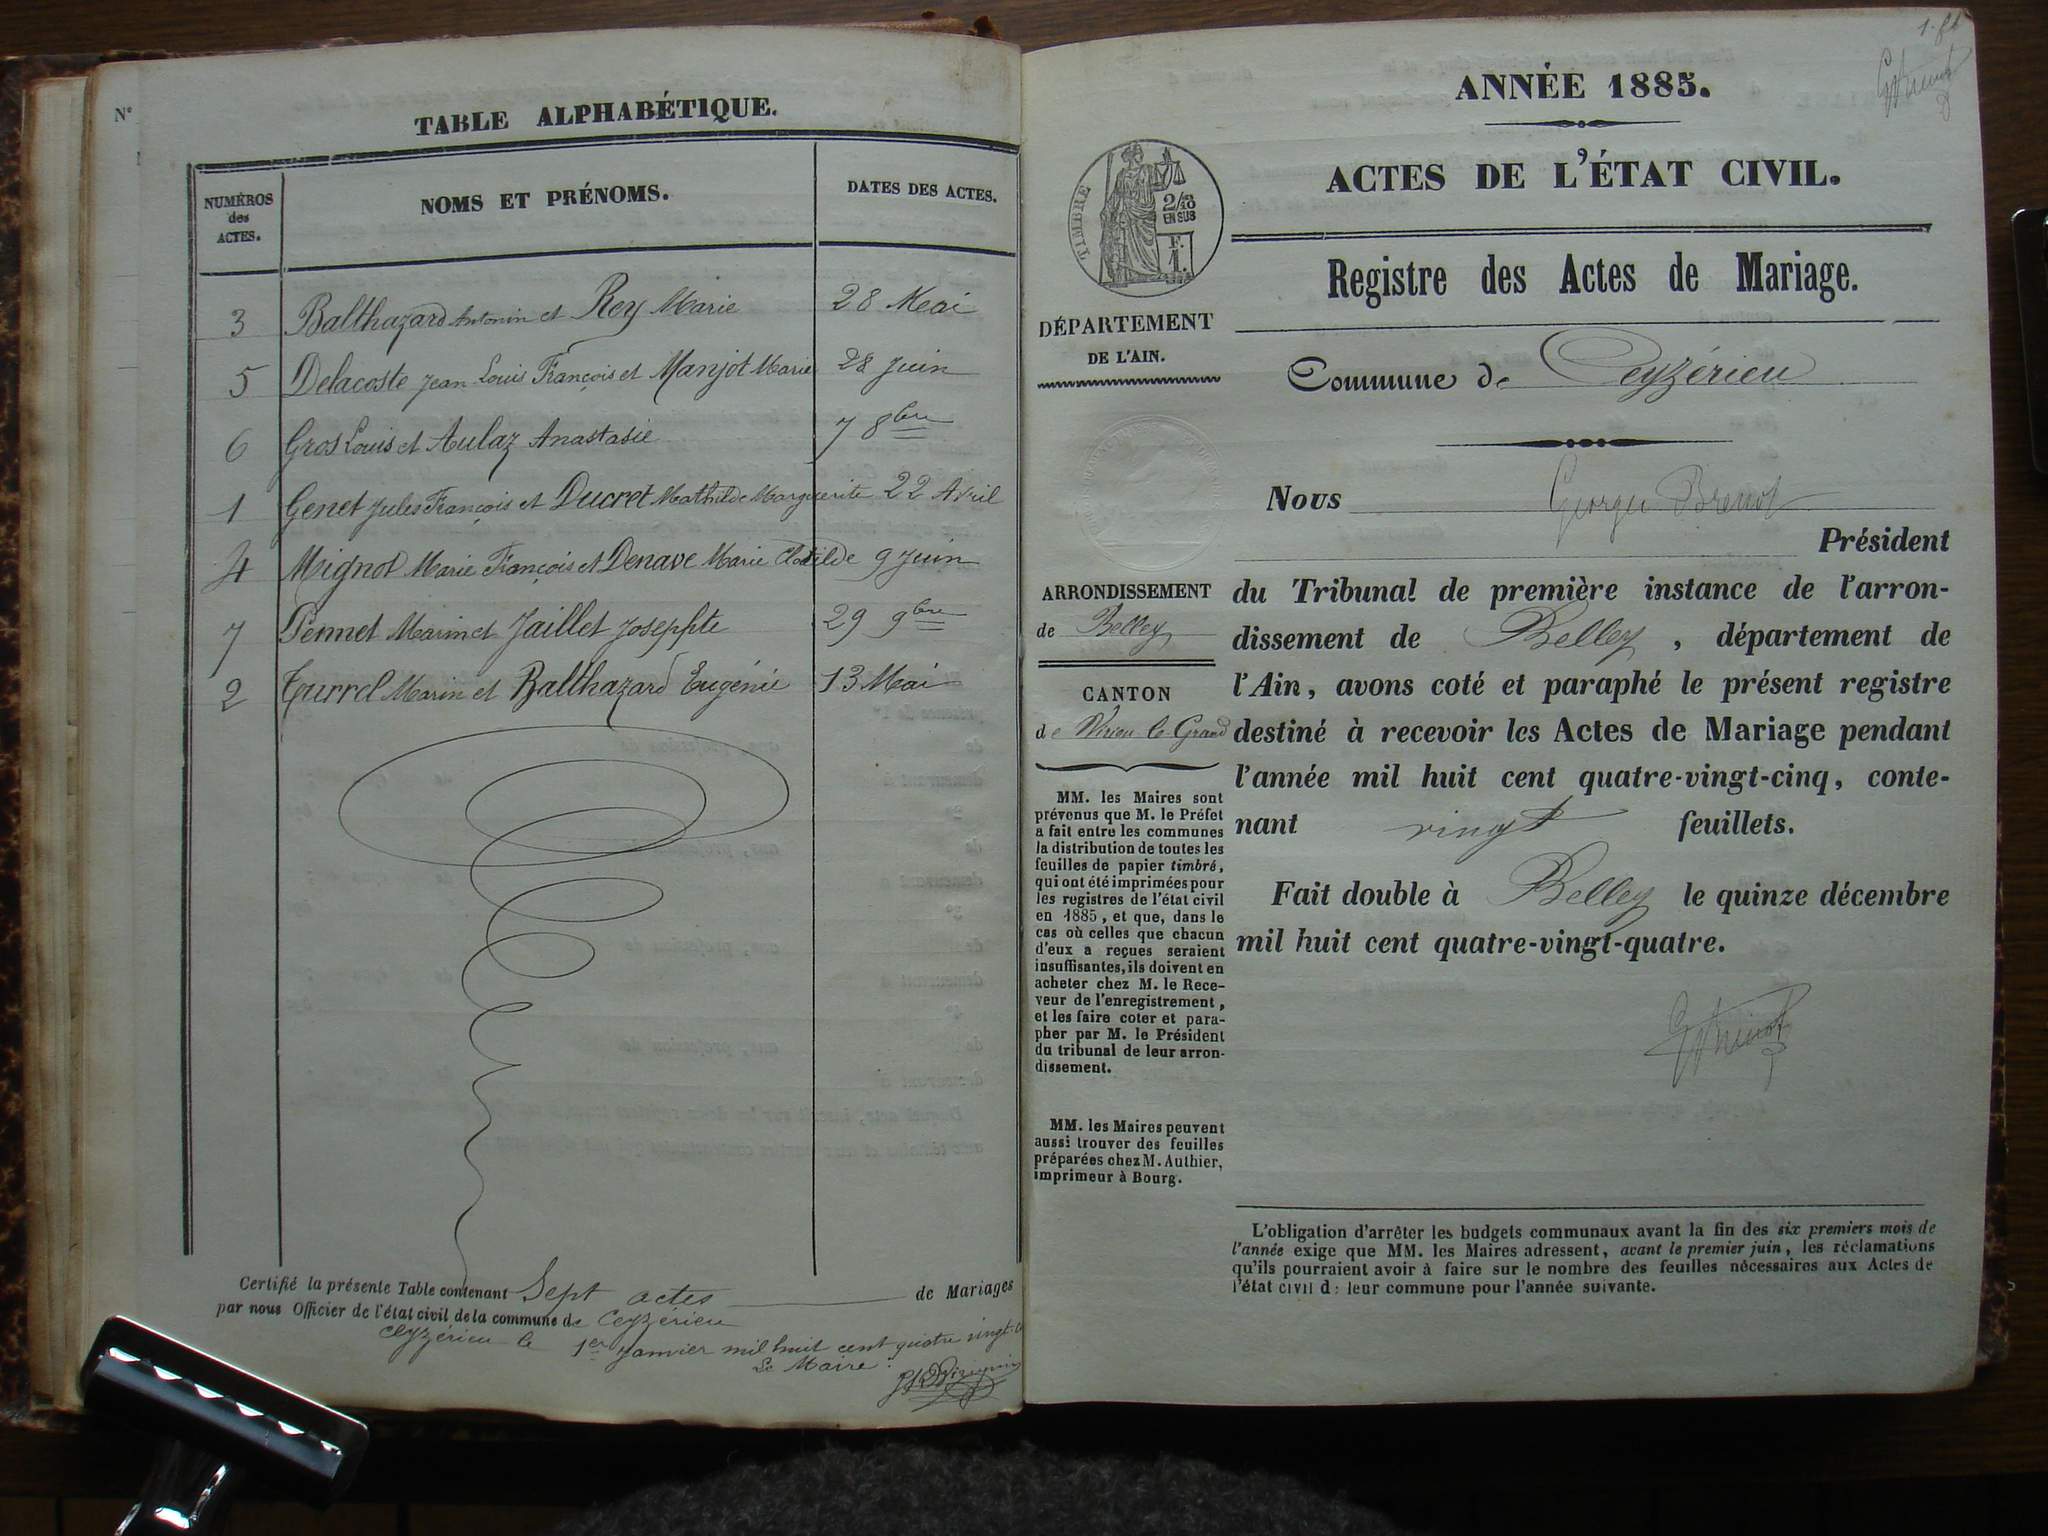 N°
TABLE ALPHABÉTIQUE.
NUMÉROS
des
ACTES.
NOMS ET PRÉNOMS.
DATES DES ACTES.
3 Balthazard Antonin et Rey Marie 28 Mai
5 Delacoste Jean Louis François et Manjot Marie 28 Juin
6 Gros Louis et Aulaz Anastasie 7 8bre
1 Genet Jules François et Ducret Mathilde Marguerite 22 Avril
4 Mignot Marie François et Denave Marie Clotilde 9 Juin
7 Pennet Marin et Jaillet Josephte 29 9bre
2 Turrel Marin et Balthazard Eugénie 13 Mai
Certifié la présente Table contenant Sept actes de Mariages
par nous Officier de l'état civil de la commune de Ceyzérieu
Ceyzérieu le 1er Janvier mil huit cent quatre vingt
Le Maire:
ANNÉE 1885.
ACTES DE L'ÉTAT CIVIL.
TIMBRE
2/10
EN SUS
F.
1.
Registre des Actes de Mariage.
DÉPARTEMENT
DE L'AIN.
Commune de Ceyzérieu
Nous Georges Brenot
Président
du Tribunal de première instance de l'arron-
dissement de Belley, département de
l'Ain, avons coté et paraphé le présent registre
destiné à recevoir les Actes de Mariage pendant
l'année mil huit cent quatre-vingt-cinq, conte-
nant vingt feuillets.
Fait double à Belley le quinze décembre
mil huit cent quatre-vingt-quatre.
ARRONDISSEMENT
de Belley
CANTON
de Virieu le Grand
MM. les Maires sont
prévenus que M. le Préfet
a fait entre les communes
la distribution de toutes les
feuilles de papier timbré,
qui ont été imprimées pour
les registres de l'état civil
en 1885, et que, dans le
cas où celles que chacun
d'eux a reçues seraient
insuffisantes, ils doivent en
acheter chez M. le Rece-
veur de l'enregistrement,
et les faire coter et para-
pher par M. le Président
du tribunal de leur arron-
dissement.
MM. les Maires peuvent
aussi trouver des feuilles
préparées chez M. Authier,
imprimeur à Bourg.
L'obligation d'arrêter les budgets communaux avant la fin des six premiers mois de
l'année exige que MM. les Maires adressent, avant le premier juin, les réclamations
qu'ils pourraient avoir à faire sur le nombre des feuilles nécessaires aux Actes de
l'état civil de leur commune pour l'année suivante.